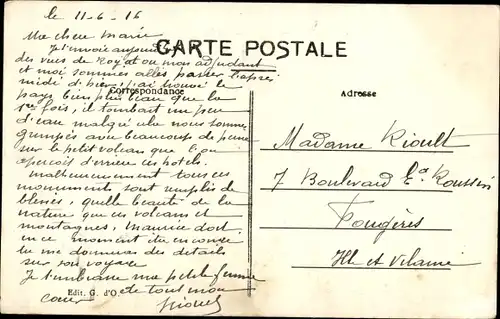 le 11-6-16
Ma chere Marie
CARTE POSTALE
Je t'envoie aujourd
des vues de Royat ou mon adjudant
et moi sommes allés passer l'après
midi d'hier, j'ai trouvé le
Correspondance
Adresse
pays bien plus beau que la
1re fois, il tombait un peu
d'eau malgré cela nous sommes
grimpés avec beaucoup de peine
sur le petit volcan que l'on
aperçoit derrière ces hotels.
malheureusement tous ces
monuments sont remplis de
blessés, quelle beauté de la
nature que ces volcans et
montagnes, Maurice doit
en ce moment
tu me donneras des détails
sur son voyage
Je t'embrasse ma petite femme
de tout mon
coeur
Edit. G. d'O.
Madame Rioult
7 Boulevard Roussin
Fougères
Ille et Vilaine